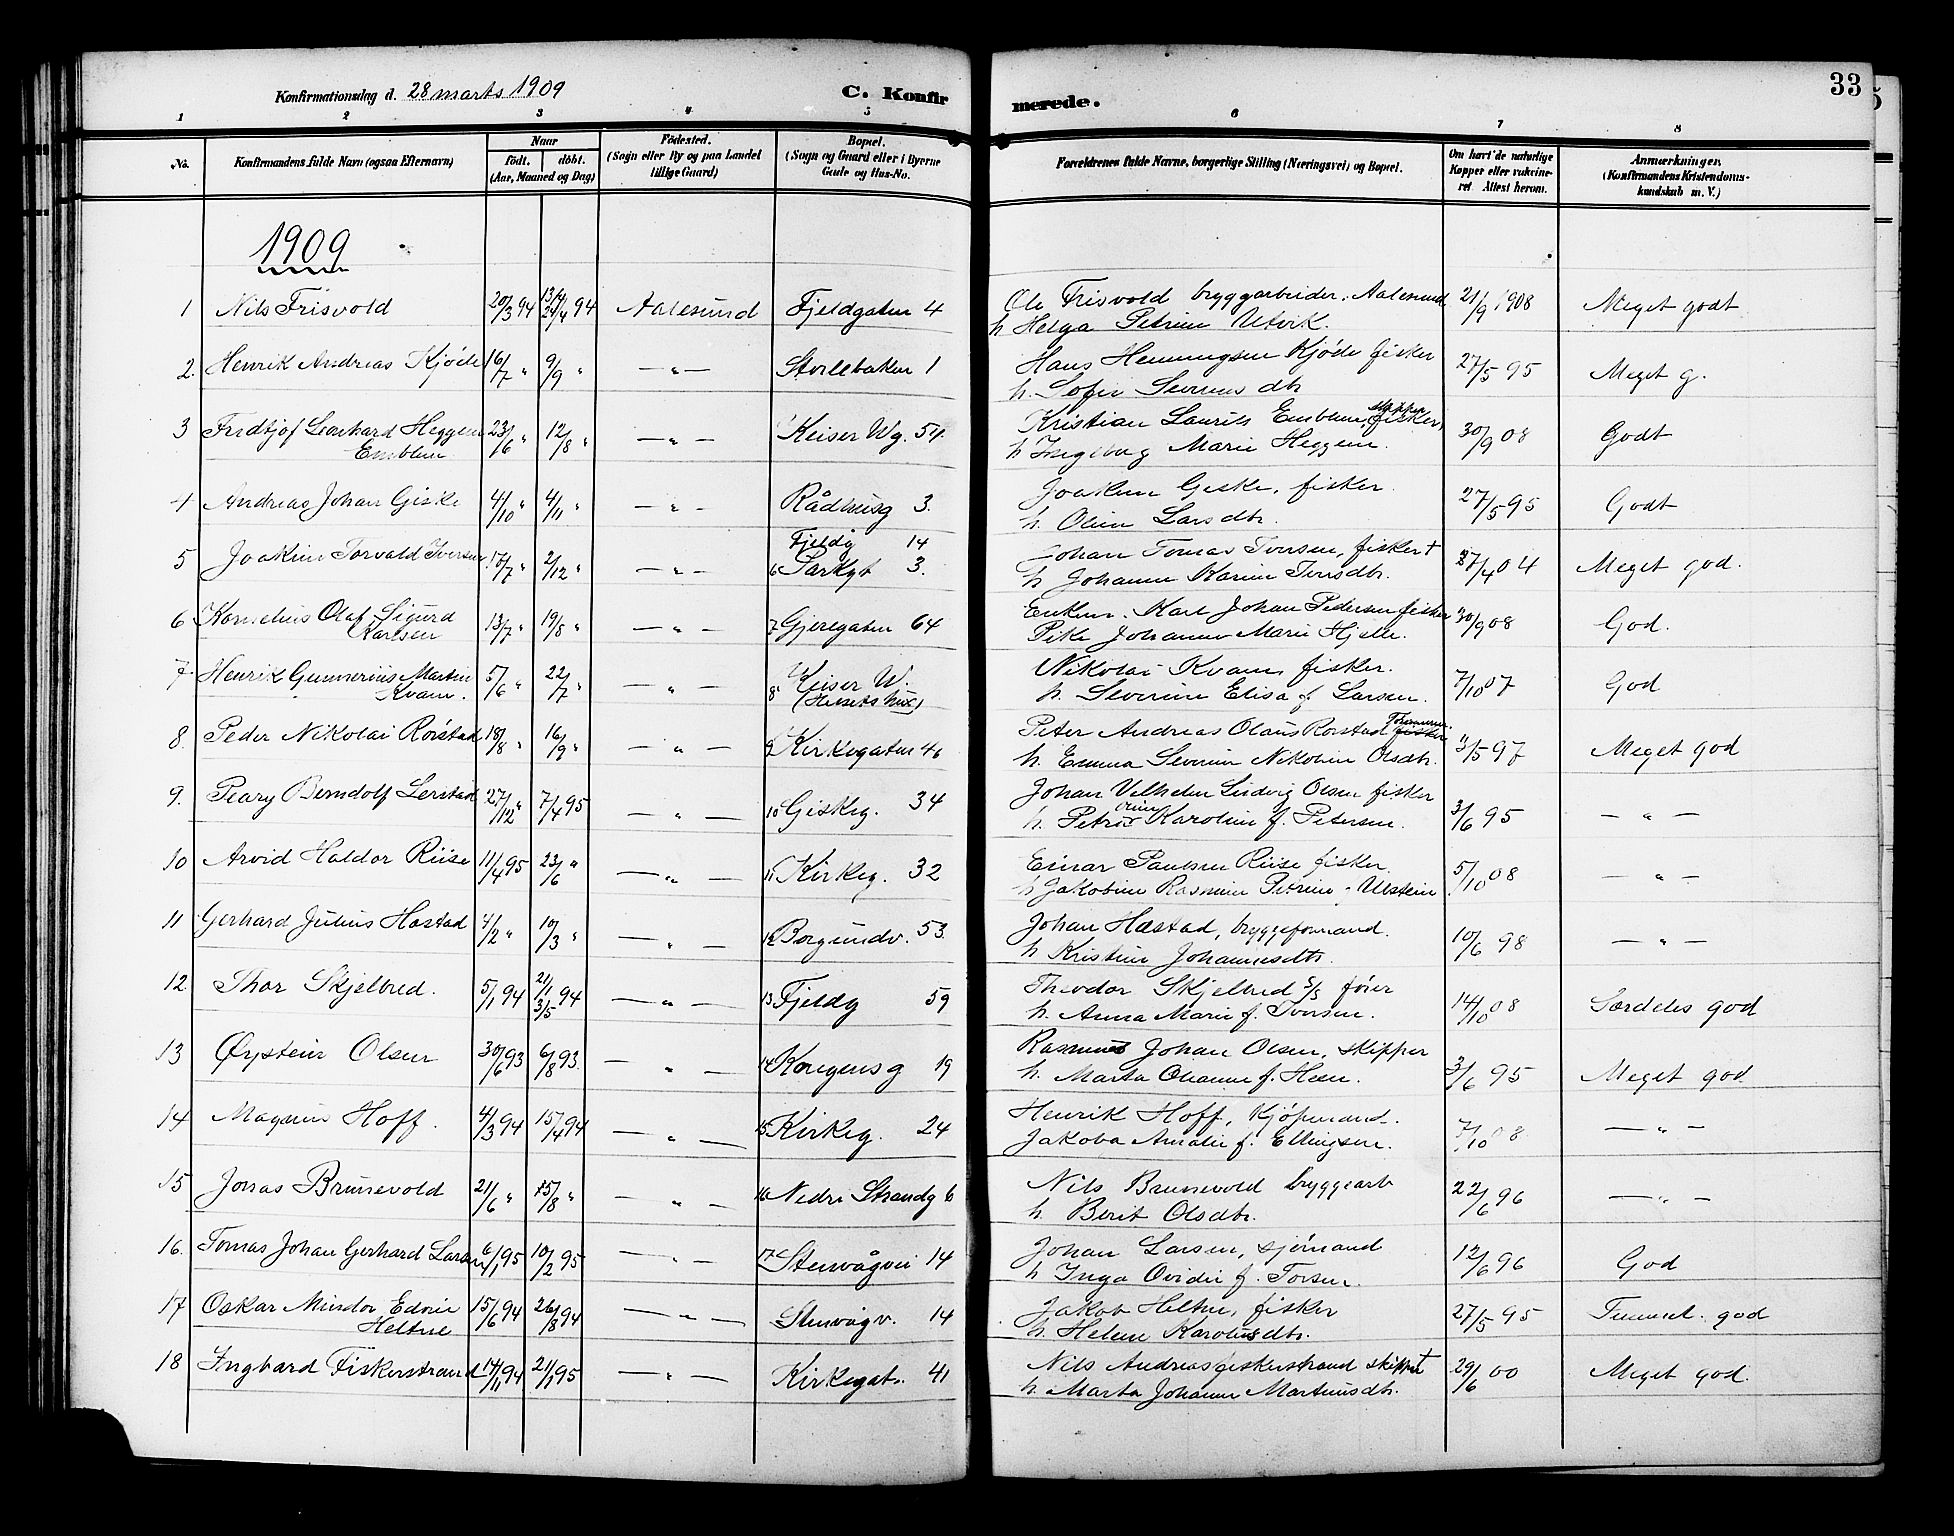 Konfirmationsdag d. 28 marts 1909
C. Konfirmerede.
33
1 2 3 4 5 6 7 8
No.
Konfirmandens fulde Navn (ogsaa Efternavn)
Naar
födt. döbt.
(Aar, Maaned og Dag)
Födested.
(Sogn eller By og paa Landet
tillige Gaard)
Bopæl.
(Sogn og Gaard eller i Byerne
Gade og Hus-No.
Forældrenes fulde Navne, borgerlige Stilling (Næringsvei) og Bopæl.
Om havt de naturlige
Kopper eller vakcine-
ret Attest herom.
Anmærkninger.
(Konfirmandens Kristendoms-
kundskab m. V.)
1909
1 Nils Frisvold 20/3 94 13/4 24/4 94 Aalesund Fjeldgaten 4 Ole Frisvold bryggarbeider, Aalesund 21/9 1908 Meget godt
h Helga Petrine Utvik.
2. Henrik Andreas Kjöde 16/7 " 9/9 " — " — Storlebaken 1 Hans Henningsen Kjöde fisker 27/5 95 Meget g.
h. Sofie Severinsdtr
3 Fridtjof Leonhard Heggem 23/6 " 12/8 " — " — Keiser Wg. 54 Kristian Laurits Emblem, fisker, 30/9 08 Godt
Emblem h Ingeborg Marie Heggem.
4 Andreas Johan Giske 4/10 " 4/11 " — " — Rådhusg 3. Joakim Giske, fisker. 27/5 95 Godt
h. Oline Larsdtr.
Fjeldg 14
5 Joakim Torvald Iversen 17/7 " 2/12 " — " — 6 Parkgt 3. Johan Tomas Iversen, fisker † 27/4 04 Meget god.
h Johanne Karine Iversdtr.
6 Kornelius Olaf Sigurd 13/7 " 19/8 " — " — 7 Gjeregaten 64 Enkem. Karl Johan Pedersen fisker 30/9 08 God.
Karlsen Pike Johanne Marie Hjelle.
7. Henrik Gunnerius Martin 5/6 " 22/7 " — " — 8 Keiser W. Nikolai Kvam, fisker. 7/10 07 God
Kvam. h. Severine Elisa f. Larsen.
8. Peder Nikolai Rörstad 18/8 " 16/9 " — " — 9 Kirkegaten 46 Peter Andreas Olaus Rörstad fisker 11/5 97 Meget god
h. Emma Severine Nikoline Olsdtr.
9. Peary Berndolf Lerstad 27/12 " 7/4 95 — " — 10 Giskeg. 34 Johan Vilhelm Ludvig Olsen fisker 3/6 95 — " —
h. Petrine Karoline f. Petersen.
10 Arvid Haldor Riise 11/4 95 23/6 " — " — 11 Kirkeg. 32 Einar Paulsen Riise fisker 5/10 08 — " —
h Jakobine Rasmine Petrine Ulstein
11 Gerhard Julius Hastad 4/2 " 10/3 " — " — 12 Borgundv. 53. Johan Hastad, bryggeformand. 10/6 98 — " —
h Kristine Johannesdtr.
12. Thor Skjelbred. 5/1 94 21/1 3/5 94 — " — 13 Fjeldg 59 Theodor Skjelbred s/s förer 14/10 08 Særdeles god
h. Anna Marie f. Iversen.
13 Øystein Olsen 30/6 93 6/8 93. — " — 14 Kongensg 19 Rasmus Johan Olsen, skipper 3/6 95 Meget god
h. Marta Oliane f. Heen.
14 Magnus Hoff. 4/3 94 15/4 94 — " — 15 Kirkeg. 24 Henrik Hoff, Kjöpmand. 7/10 08 — " —
Jakoba Amalie f. Ellingsen.
15 Jonas Brunevold 21/6 " 15/8 " — " — 16 Nedre Strandg 6 Nils Brunevold bryggearb 22/6 96 — " —
h. Berit Olsdtr.
16. Tomas Johan Gerhard Larsen 6/1 95 10/2 95 — " — 17 Stenvågvei 14 Johan Larsen, sjömand 12/6 96 God
h Inga Ovidie f. Torsen.
17 Oskar Mindor Edvin 15/6 94 26/8 94 — " — Stenvågv. 14 Jakob Heltne, fisker 27/5 95 Temmel. god
Heltne h. Helene Karolusdtr.
18 Ingvard Fiskerstrand 14/11 94 21/1 95 — " — Kirkegat. 41 Nils Andreas Fiskerstrand skipper † 29/6 00 Meget god.
h. Marta Johanne Martinusdtr.